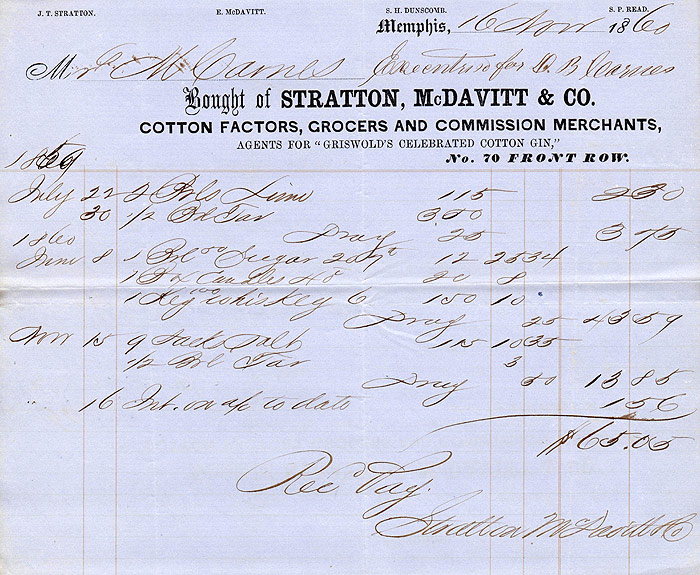 J. T. STRATTON. E. McDAVITT. S. H. DUNSCOMB. S. P. READ.
Memphis, 16 Nov 1860
M Carnes Executrix for D. B Carnes
Bought of STRATTON, McDAVITT & CO.
COTTON FACTORS, GROCERS AND COMMISSION MERCHANTS,
AGENTS FOR "GRISWOLD'S CELEBRATED COTTON GIN,"
No. 70 FRONT ROW.
1859
July 22 2 Brls Lime 115 230
30 1/2 Brl Tar 350
Dray 25 375
1860
June 8 1 Brl Sugar 12 2534
1 Bx Candles 40 20 8
1 Keg Whiskey 6 150 10
Dray 25 4359
Nov 15 9 Sacks Salt 115 1035
1/2 Brl Tar 3
Dray 50 1385
" 16 Int. on a/c to date 156
$65.05
Rec Pay.
Stratton McDavitt & Co